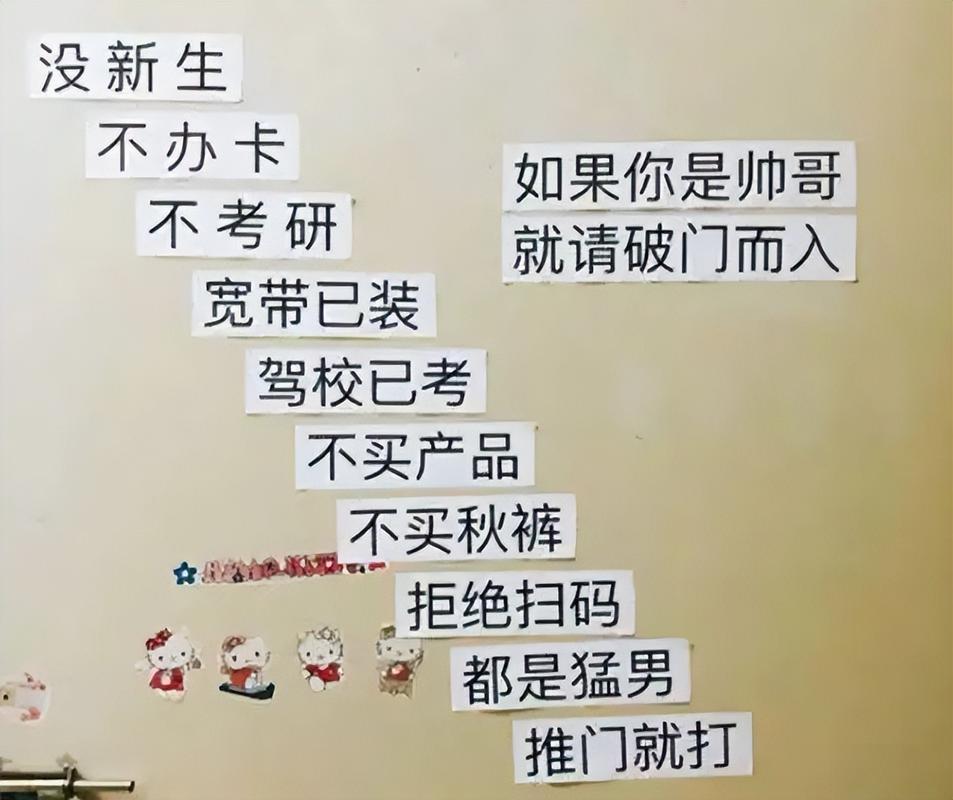 没新生
不办卡
不考研
宽带已装
驾校已考
不买产品
不买秋裤
拒绝扫码
都是猛男
推门就打
如果你是帅哥
就请破门而入